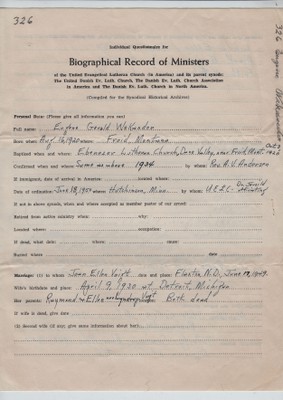 326
Individual Questionnaire for
Biographical Record of Ministers
of the United Evangelical Lutheran Church (in America) and its parent synods:
The United Danish Ev. Luth. Church, The Danish Ev. Luth. Church Association
in America and The Danish Ev. Luth. Church in North America.
(Compiled for the Synodical Historical Archives)
Personal Data: (Please give all information you can)
Full name: Eugene Gerald Wekander
Born when: Aug 16, 1920 where: Froid, Montana
Baptized when and where: Ebenezer Lutheran Church, Dane Valley, near Froid, Mont. Oct
Confirmed when and where: Same as above 1934 by whom: Rev. A. V. Andersen
If immigrant, date of arrival in America: landed where:
Date of ordination: June 18, 1950 where: Hutchinson, Minn. by whom: U.E.L.C.
If not in above synods, when and where accepted as member pastor of our synod:
Retired from active ministry when: why:
Located where: occupation:
If dead, what date: where: cause:
Buried where date
Marriage: (1) to whom: Joan Ellen Voigt date and place: Flaxton N.D., June 19, 1949
Wife's birthdate and place: April 9, 1930 at Detroit, Michigan
Her parents: Raymond & Ellen Voigt Both dead
If wife is dead, give date
(2) Second wife (if any, give same information about her):
326 Eugene Wekander